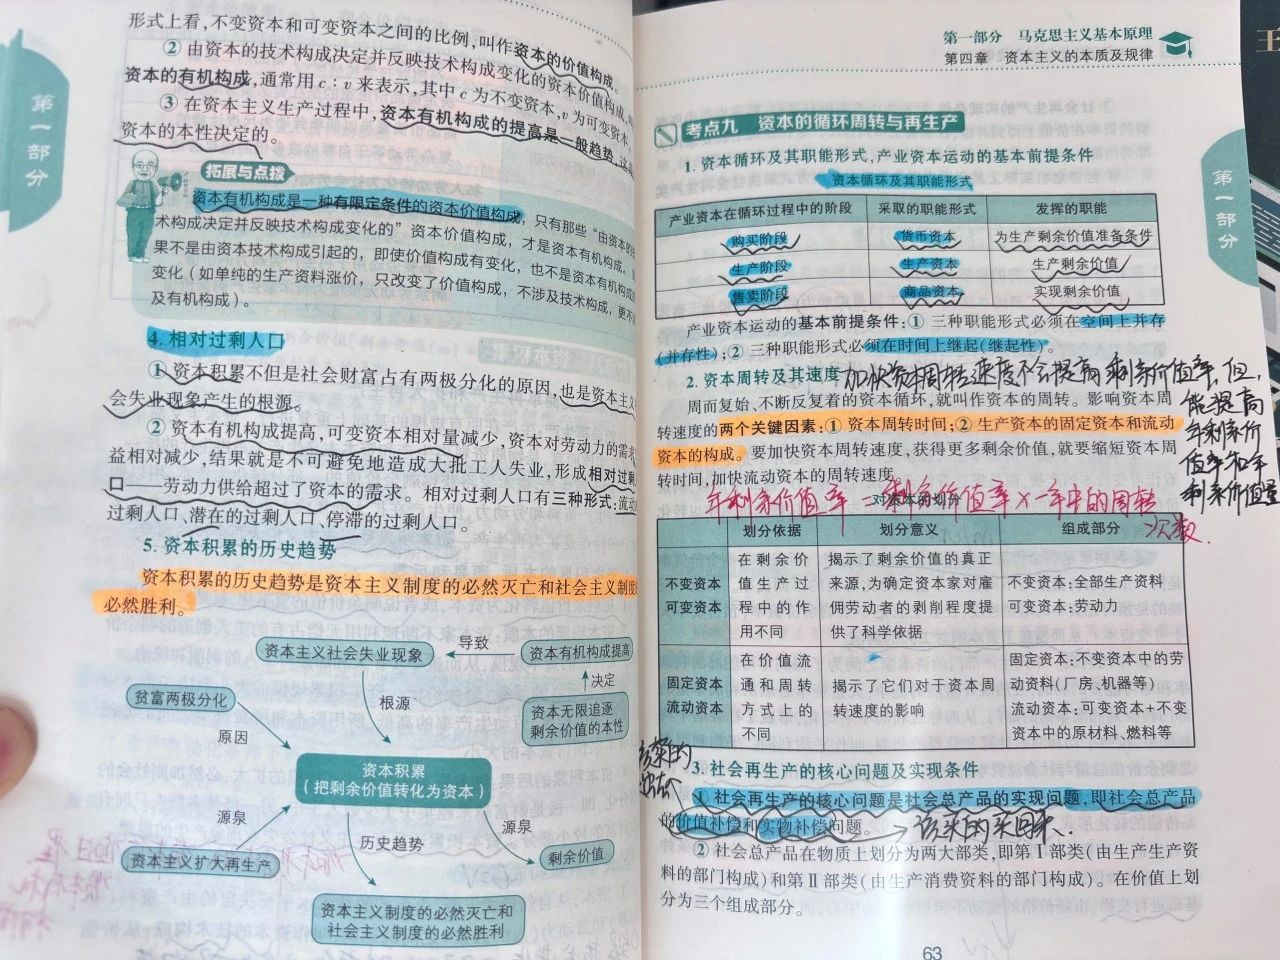 第一部分
形式上看,不变资本和可变资本之间的比例,叫作资本的价值构成。
② 由资本的技术构成决定并反映技术构成变化的资本价值构成,
资本的有机构成,通常用 c:v 来表示,其中 c 为不变资本,v 为可变资本。
③ 在资本主义生产过程中,资本有机构成的提高是一般趋势,这是
资本的本性决定的。
拓展与点拨
资本有机构成是一种有限定条件的资本价值构成,只有那些“由资本的技
术构成决定并反映技术构成变化的”资本价值构成,才是资本有机构成。
果不是由资本技术构成引起的,即使价值构成有变化,也不是资本有机构成的
变化(如单纯的生产资料涨价,只改变了价值构成,不涉及技术构成,更不
及有机构成)。
4. 相对过剩人口
① 资本积累不但是社会财富占有两极分化的原因,也是资本主义
会失业现象产生的根源。
② 资本有机构成提高,可变资本相对量减少,资本对劳动力的需求
益相对减少,结果就是不可避免地造成大批工人失业,形成相对过剩
口——劳动力供给超过了资本的需求。相对过剩人口有三种形式:流动
过剩人口、潜在的过剩人口、停滞的过剩人口。
5. 资本积累的历史趋势
资本积累的历史趋势是资本主义制度的必然灭亡和社会主义制度
必然胜利。
资本主义社会失业现象
导致
资本有机构成提高
决定
贫富两极分化
根源
资本无限追逐
剩余价值的本性
原因
资本积累
(把剩余价值转化为资本)
源泉
历史趋势
源泉
资本主义扩大再生产
剩余价值
资本主义制度的必然灭亡和
社会主义制度的必然胜利
第一部分 马克思主义基本原理
第四章 资本主义的本质及规律
第一部分
考点九 资本的循环周转与再生产
1. 资本循环及其职能形式,产业资本运动的基本前提条件
资本循环及其职能形式
产业资本在循环过程中的阶段 采取的职能形式 发挥的职能
购买阶段 货币资本 为生产剩余价值准备条件
生产阶段 生产资本 生产剩余价值
售卖阶段 商品资本 实现剩余价值
产业资本运动的基本前提条件:① 三种职能形式必须在空间上并存
(并存性);② 三种职能形式必须在时间上继起(继起性)。
2. 资本周转及其速度
加快资本周转速度不会提高剩余价值率,但
能提高
年剩余价
值率和年
剩余价值量
周而复始、不断反复着的资本循环,就叫作资本的周转。影响资本周
转速度的两个关键因素:① 资本周转时间;② 生产资本的固定资本和流动
资本的构成。要加快资本周转速度,获得更多剩余价值,就要缩短资本周
转时间,加快流动资本的周转速度。
年剩余价值率=剩余价值率×一年中的周转
次数.
对资本的划分
划分依据 划分意义 组成部分
不变资本
可变资本
在剩余价
值生产过
程中的作
用不同
揭示了剩余价值的真正
来源,为确定资本家对雇
佣劳动者的剥削程度提
供了科学依据
不变资本:全部生产资料
可变资本:劳动力
固定资本
流动资本
在价值流
通和周转
方式上的
不同
揭示了它们对于资本周
转速度的影响
固定资本:不变资本中的劳
动资料(厂房、机器等)
流动资本:可变资本+不变
资本中的原材料、燃料等
3. 社会再生产的核心问题及实现条件
该卖的
① 社会再生产的核心问题是社会总产品的实现问题,即社会总产品
的价值补偿和实物补偿问题。
该买的买回来.
② 社会总产品在物质上划分为两大部类,即第Ⅰ部类(由生产生产资
料的部门构成)和第Ⅱ部类(由生产消费资料的部门构成)。在价值上划
分为三个组成部分。
63